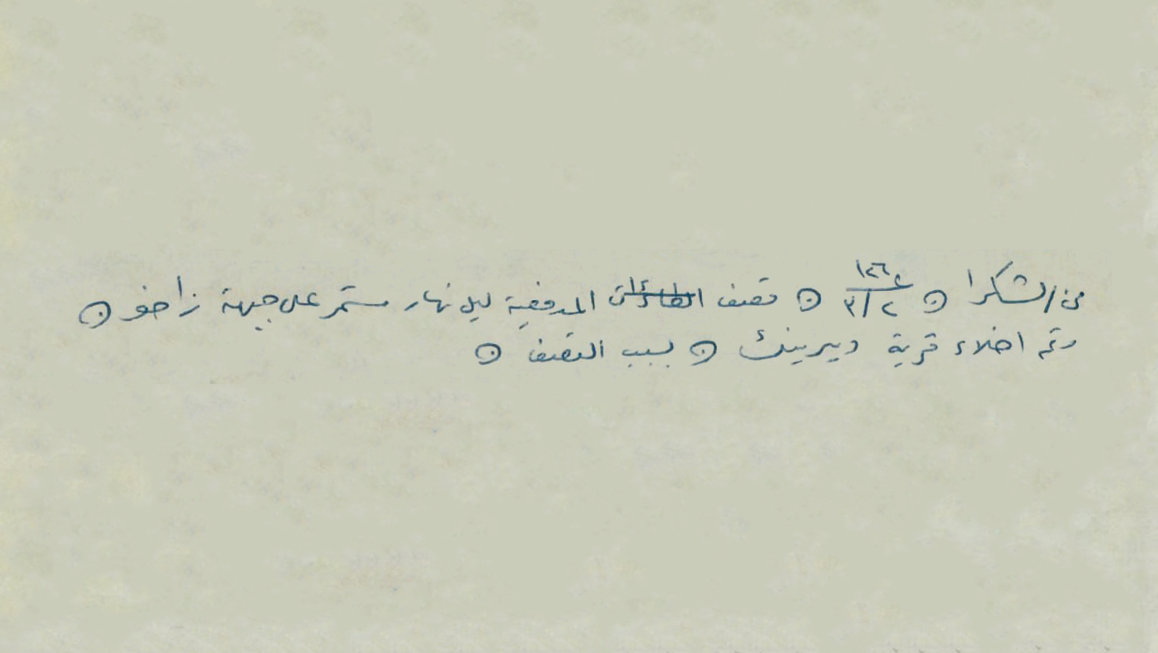 من / لشكر١ ⊙ ع ١٢٦ ٣/٢ ⊙ قصف الطائرات المدفعية ليل نهار مستمر على جبهة زاخو ⊙
وتم اخلاء قرية ديرينك ⊙ بسبب القصف ⊙